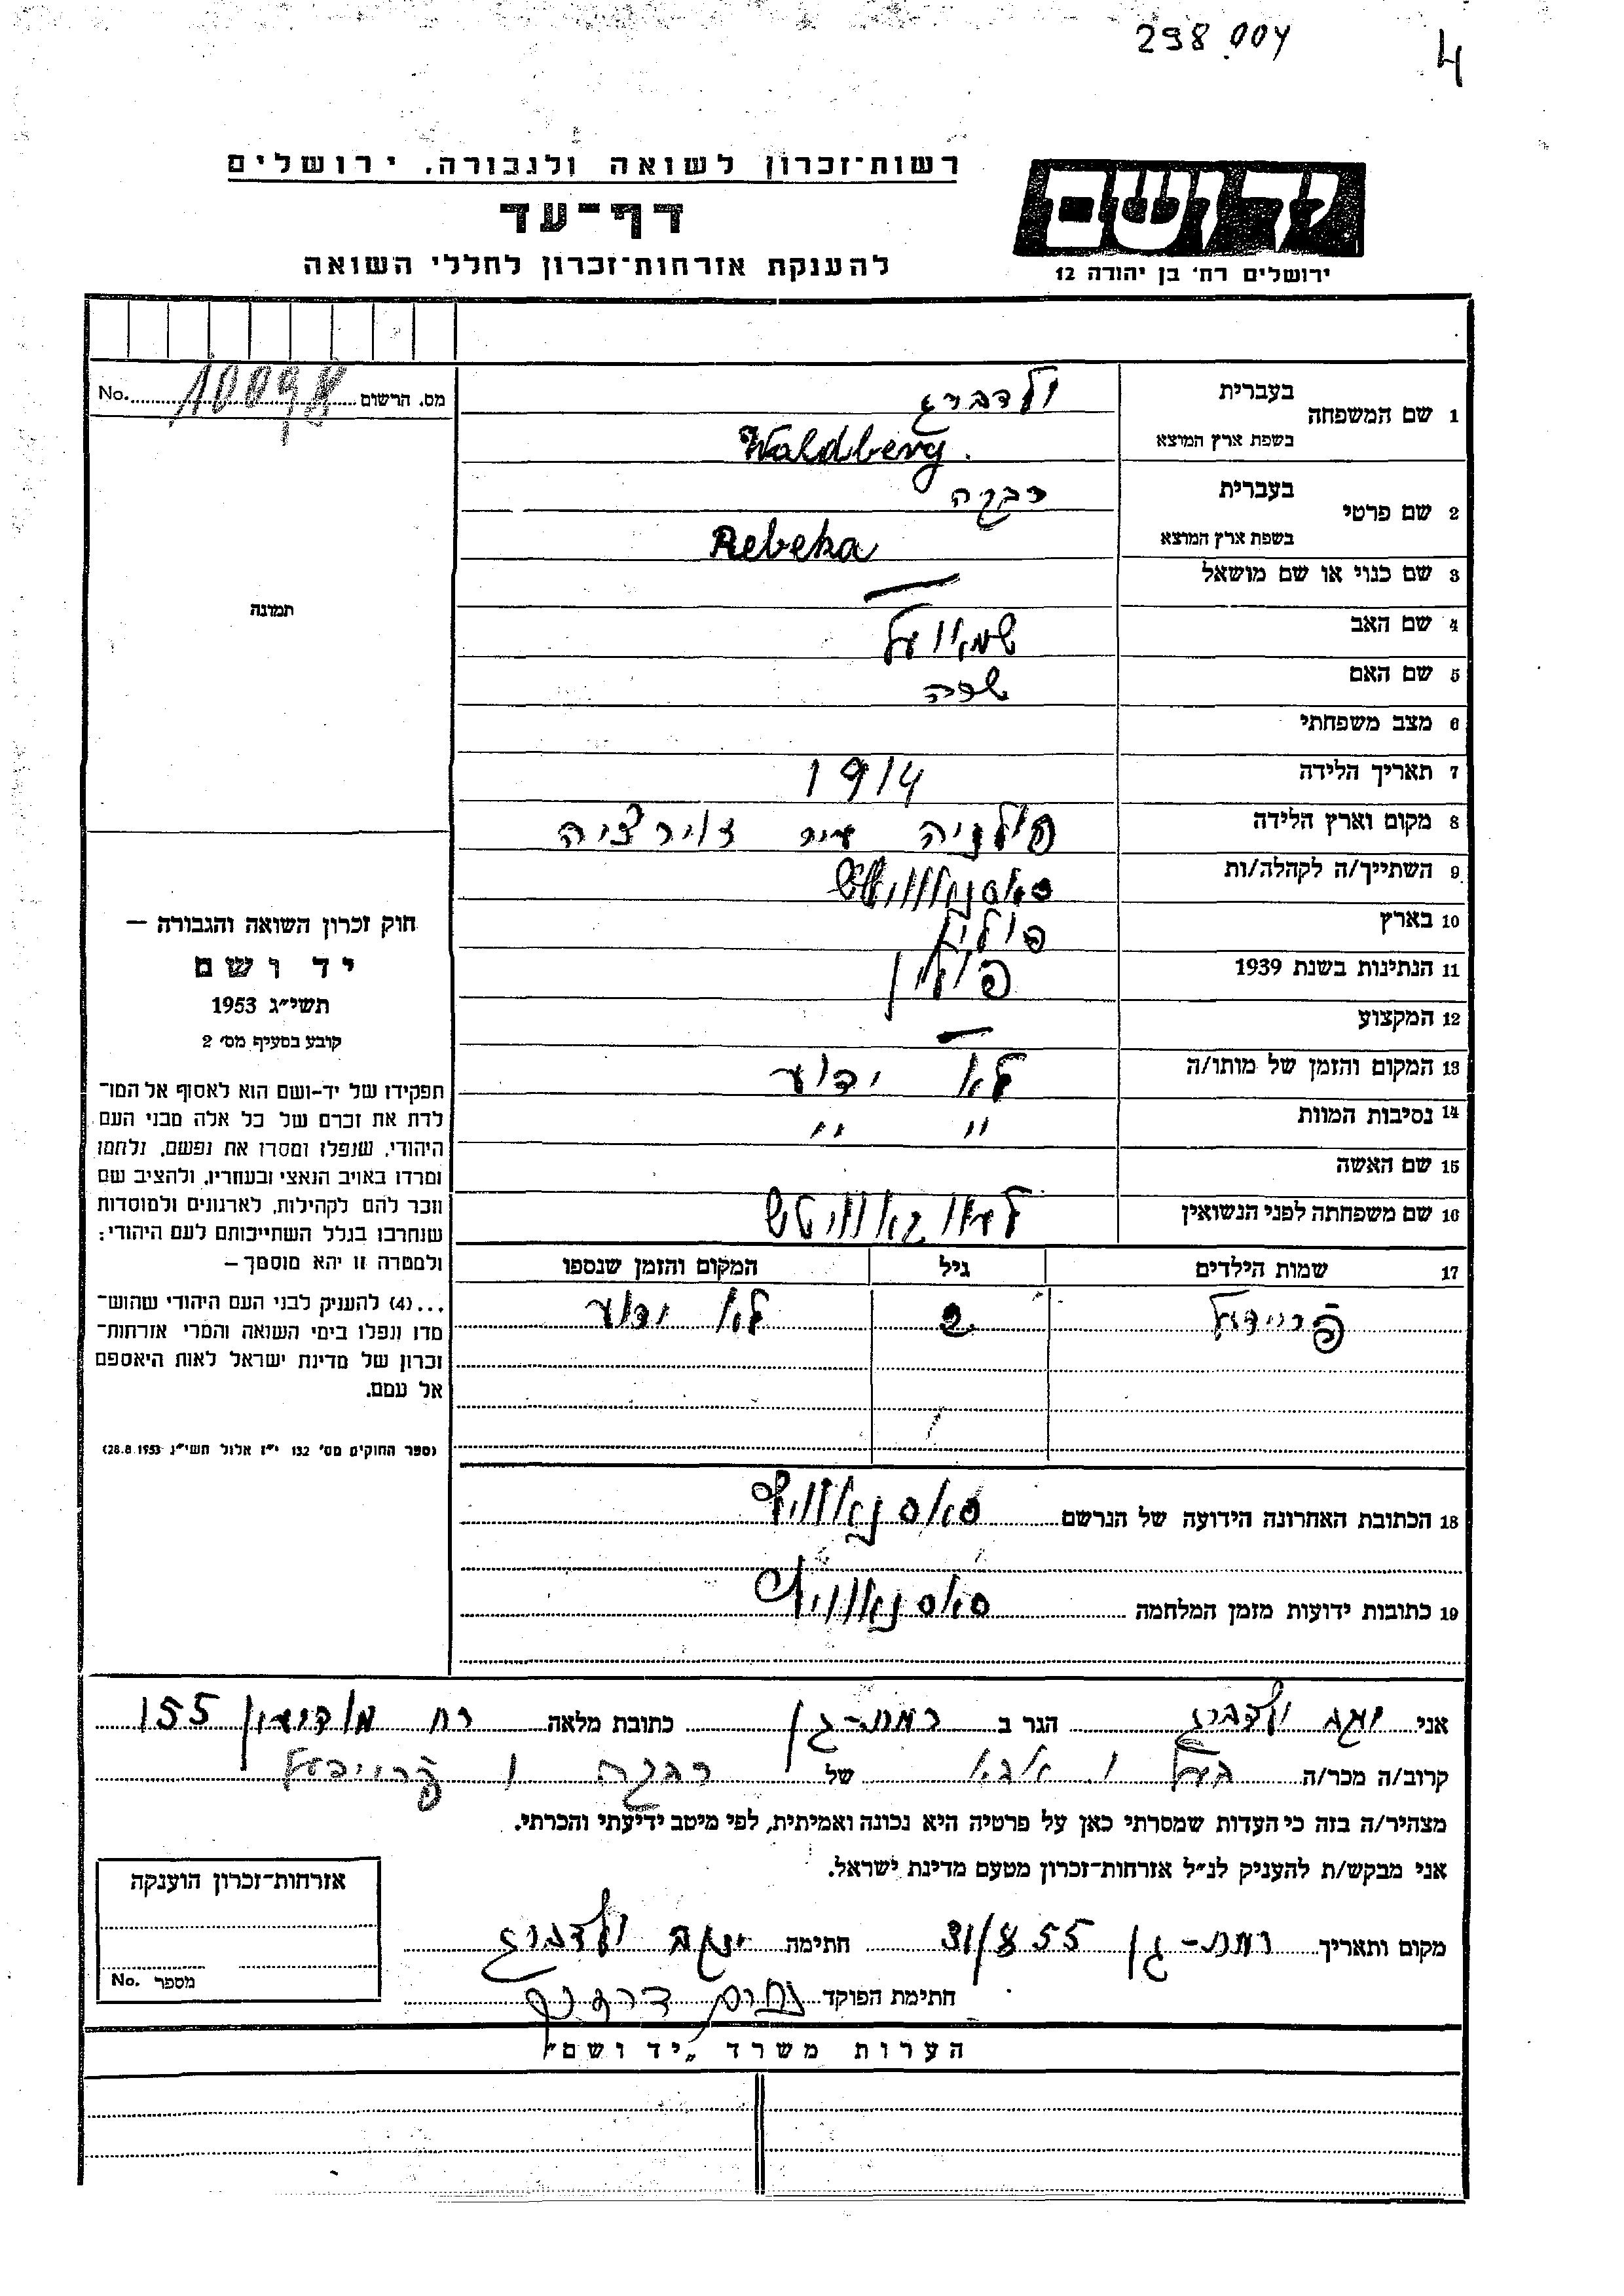 298.004
4
רשות־זכרון לשואה ולגבורה, ירושלים
דף־עד
להענקת אזרחות־זכרון לחללי השואה
יד ושם
ירושלים רח' בן יהודה 12
מס. הרשום No.
1 שם המשפחה בעברית ולדברג
בשפת ארץ המוצא Waldberg.
2 שם פרטי בעברית רבקה
בשפת ארץ המוצא Rebeka
3 שם כנוי או שם מושאל —
4 שם האב
5 שם האם שרה
6 מצב משפחתי
7 תאריך הלידה 1914
8 מקום וארץ הלידה פולניה עיר
9 השתייך/ה לקהלה/ות
10 בארץ פולין
11 הנתינות בשנת 1939 פולין
12 המקצוע —
13 המקום והזמן של מותו/ה לא ידוע
14 נסיבות המוות " "
15 שם האשה
16 שם משפחתה לפני הנשואין
17 שמות הילדים גיל המקום והזמן שנספו
2 לא ידוע
18 הכתובת האחרונה הידועה של הנרשם
19 כתובות ידועות מזמן המלחמה
תמונה
חוק זכרון השואה והגבורה —
יד ושם
תשי״ג 1953
קובע בסעיף מס׳ 2
תפקידו של יד-ושם הוא לאסוף אל המו־
לדת את זכרם של כל אלה מבני העם
היהודי, שנפלו ומסרו את נפשם, נלחמו
ומרדו באויב הנאצי ובעוזריו, ולהציב שם
וזכר להם לקהילות, לארגונים ולמוסדות
שנחרבו בגלל השתייכותם לעם היהודי;
ולמטרה זו יהא מוסמך —
...(4) להעניק לבני העם היהודי שהוש־
מדו ונפלו בימי השואה והמרי אזרחות־
זכרון של מדינת ישראל לאות היאספם
אל עמם.
(ספר החוקים מס׳ 132 י״ז אלול תשי״ג 28.8.1953)
אני יעקב ולדברג הגר ב רמת-גן כתובת מלאה רח מודיעין 155
קרוב/ה מכר/ה בעל ו אבא של רבקה ו
מצהיר/ה בזה כי העדות שמסרתי כאן על פרטיה היא נכונה ואמיתית, לפי מיטב ידיעתי והכרתי.
אני מבקש/ת להעניק לנ״ל אזרחות־זכרון מטעם מדינת ישראל.
מקום ותאריך רמת-גן 31/8 55 חתימה יעקב ולדברג
חתימת הפוקד
אזרחות־זכרון הוענקה
מספר No.
הערות משרד „יד ושם"